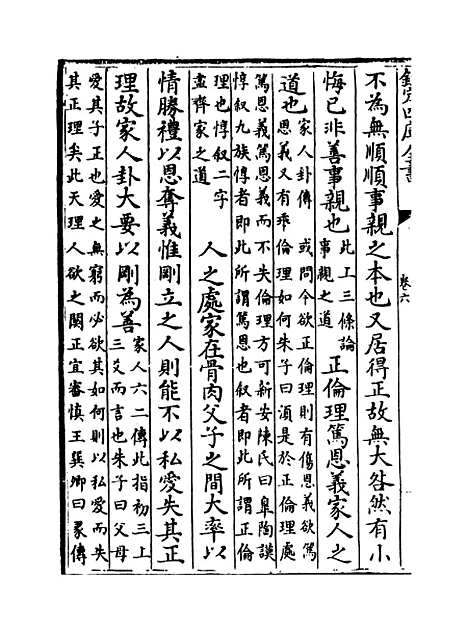 欽定四庫全書
卷六
不為無順順事親之本也又居得正故無大咎然有小
悔已非善事親也
此上三條論
事親之道
正倫理篤恩義家人之
道也
家人卦傳 或問今欲正倫理則有傷恩義欲篤
恩義又有乖倫理如何朱子曰湏是於正倫理處
篤恩義篤恩義而不失倫理方可新安陳氏曰皐陶謨
惇叙九族惇者即此所謂篤恩也叙者即此所謂正倫
理也惇叙二字
盡齊家之道
人之處家在骨肉父子之間大率以
情勝禮以恩奪義惟剛立之人則能不以私愛失其正
理故家人卦大要以剛為善
家人六二傳此指初三上
三爻而言也朱子曰父母
愛其子正也愛之無窮而必欲其如何則以私愛而失
其正理矣此天理人欲之閒正宜審慎王巽卿曰彖傳